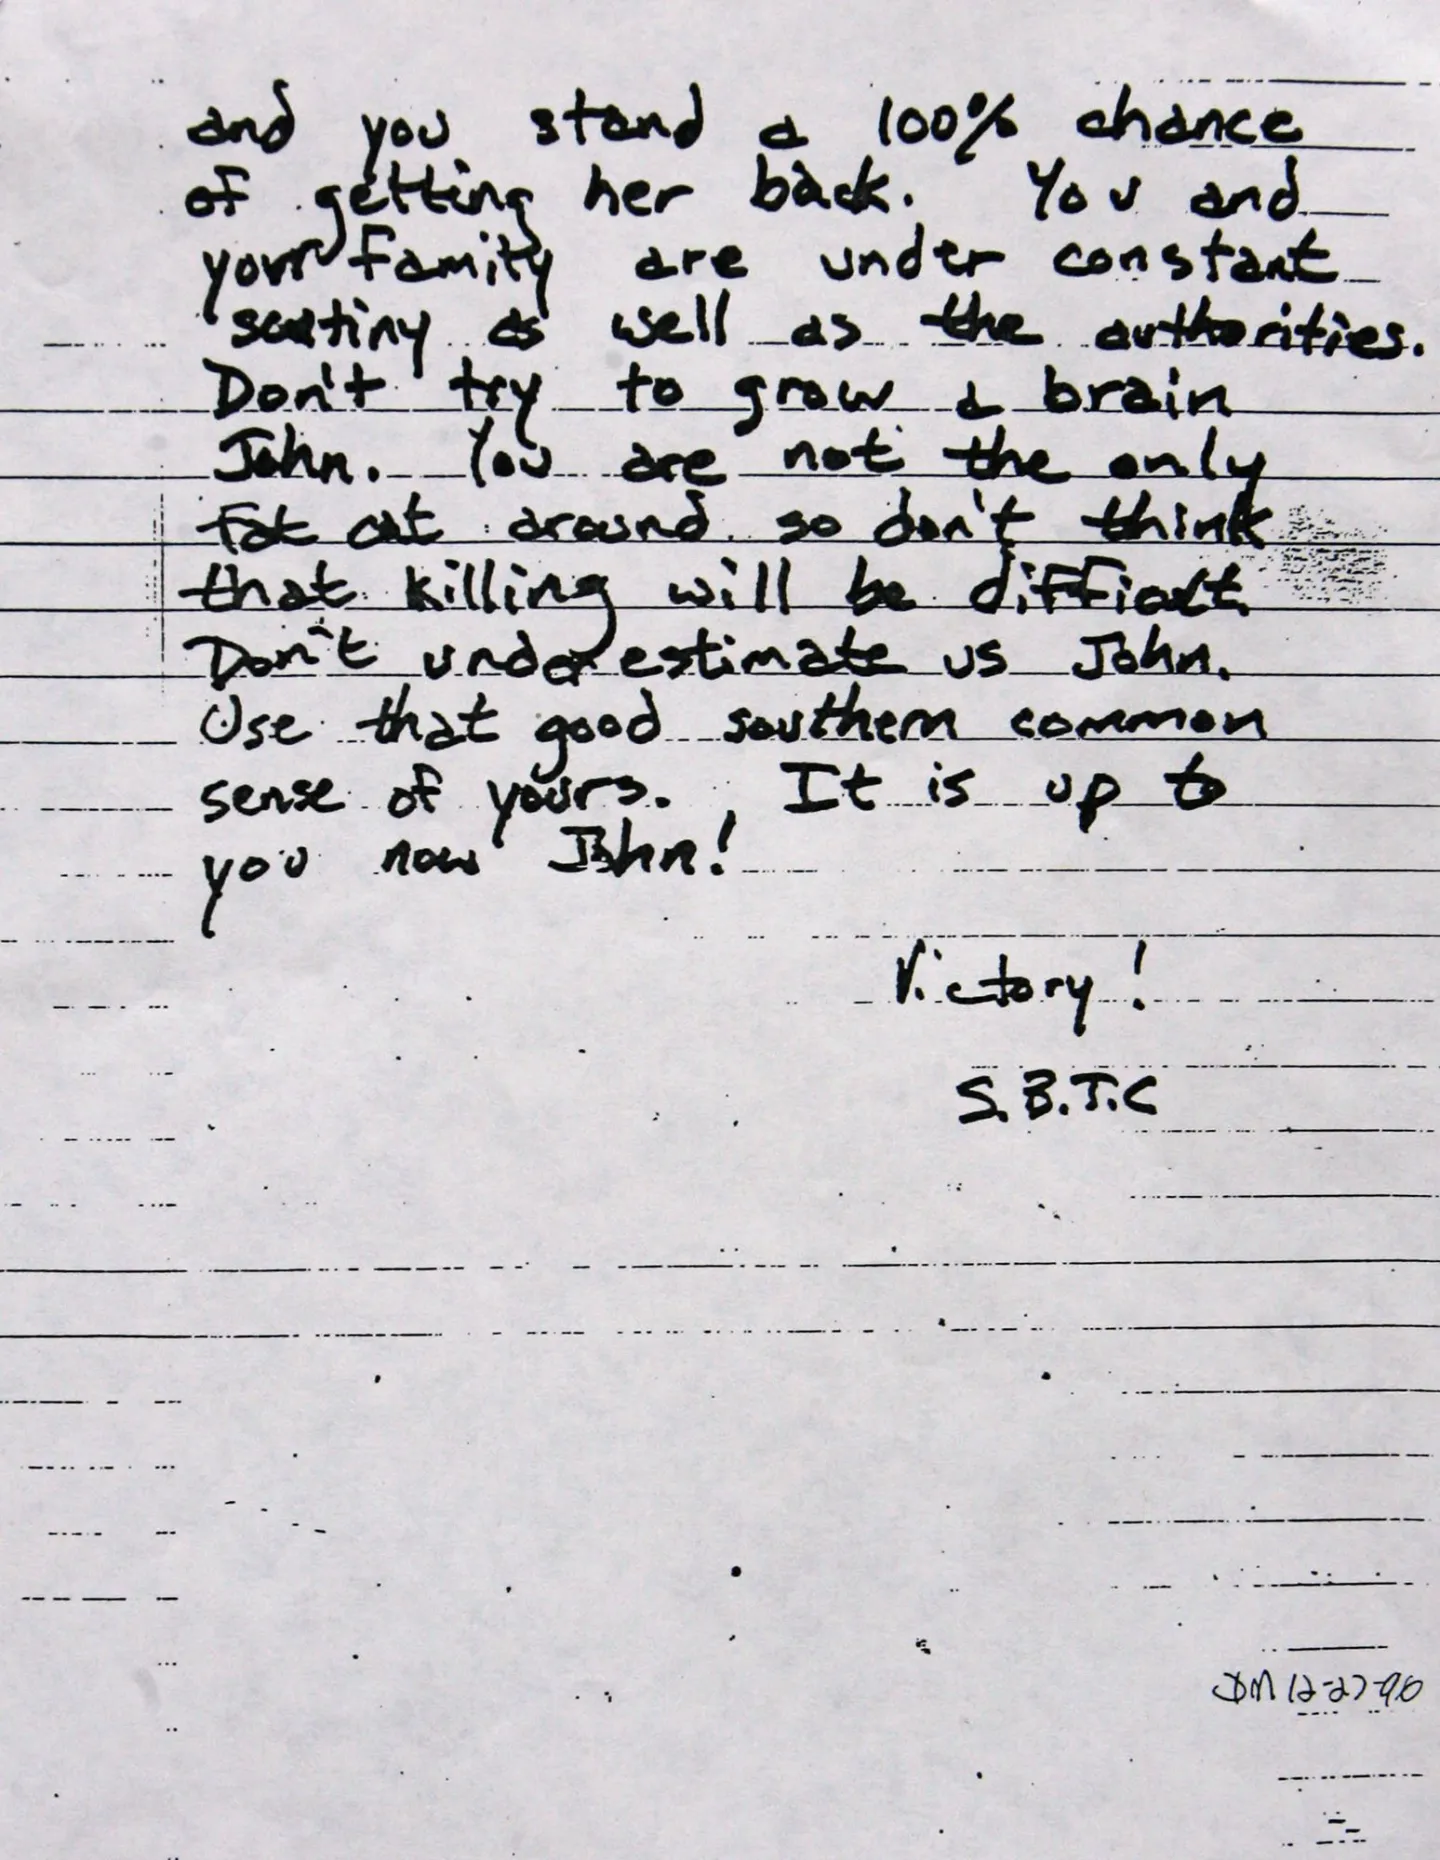 and you stand a 100% chance
of getting her back. You and
your family are under constant
scutiny as well as the authorities.
Don't try to grow a brain
John. You are not the only
fat cat around so don't think
that killing will be difficult.
Don't underestimate us John.
Use that good southern common
sense of yours. It is up to
you now John!
Victory!
S.B.T.C
12-27-96